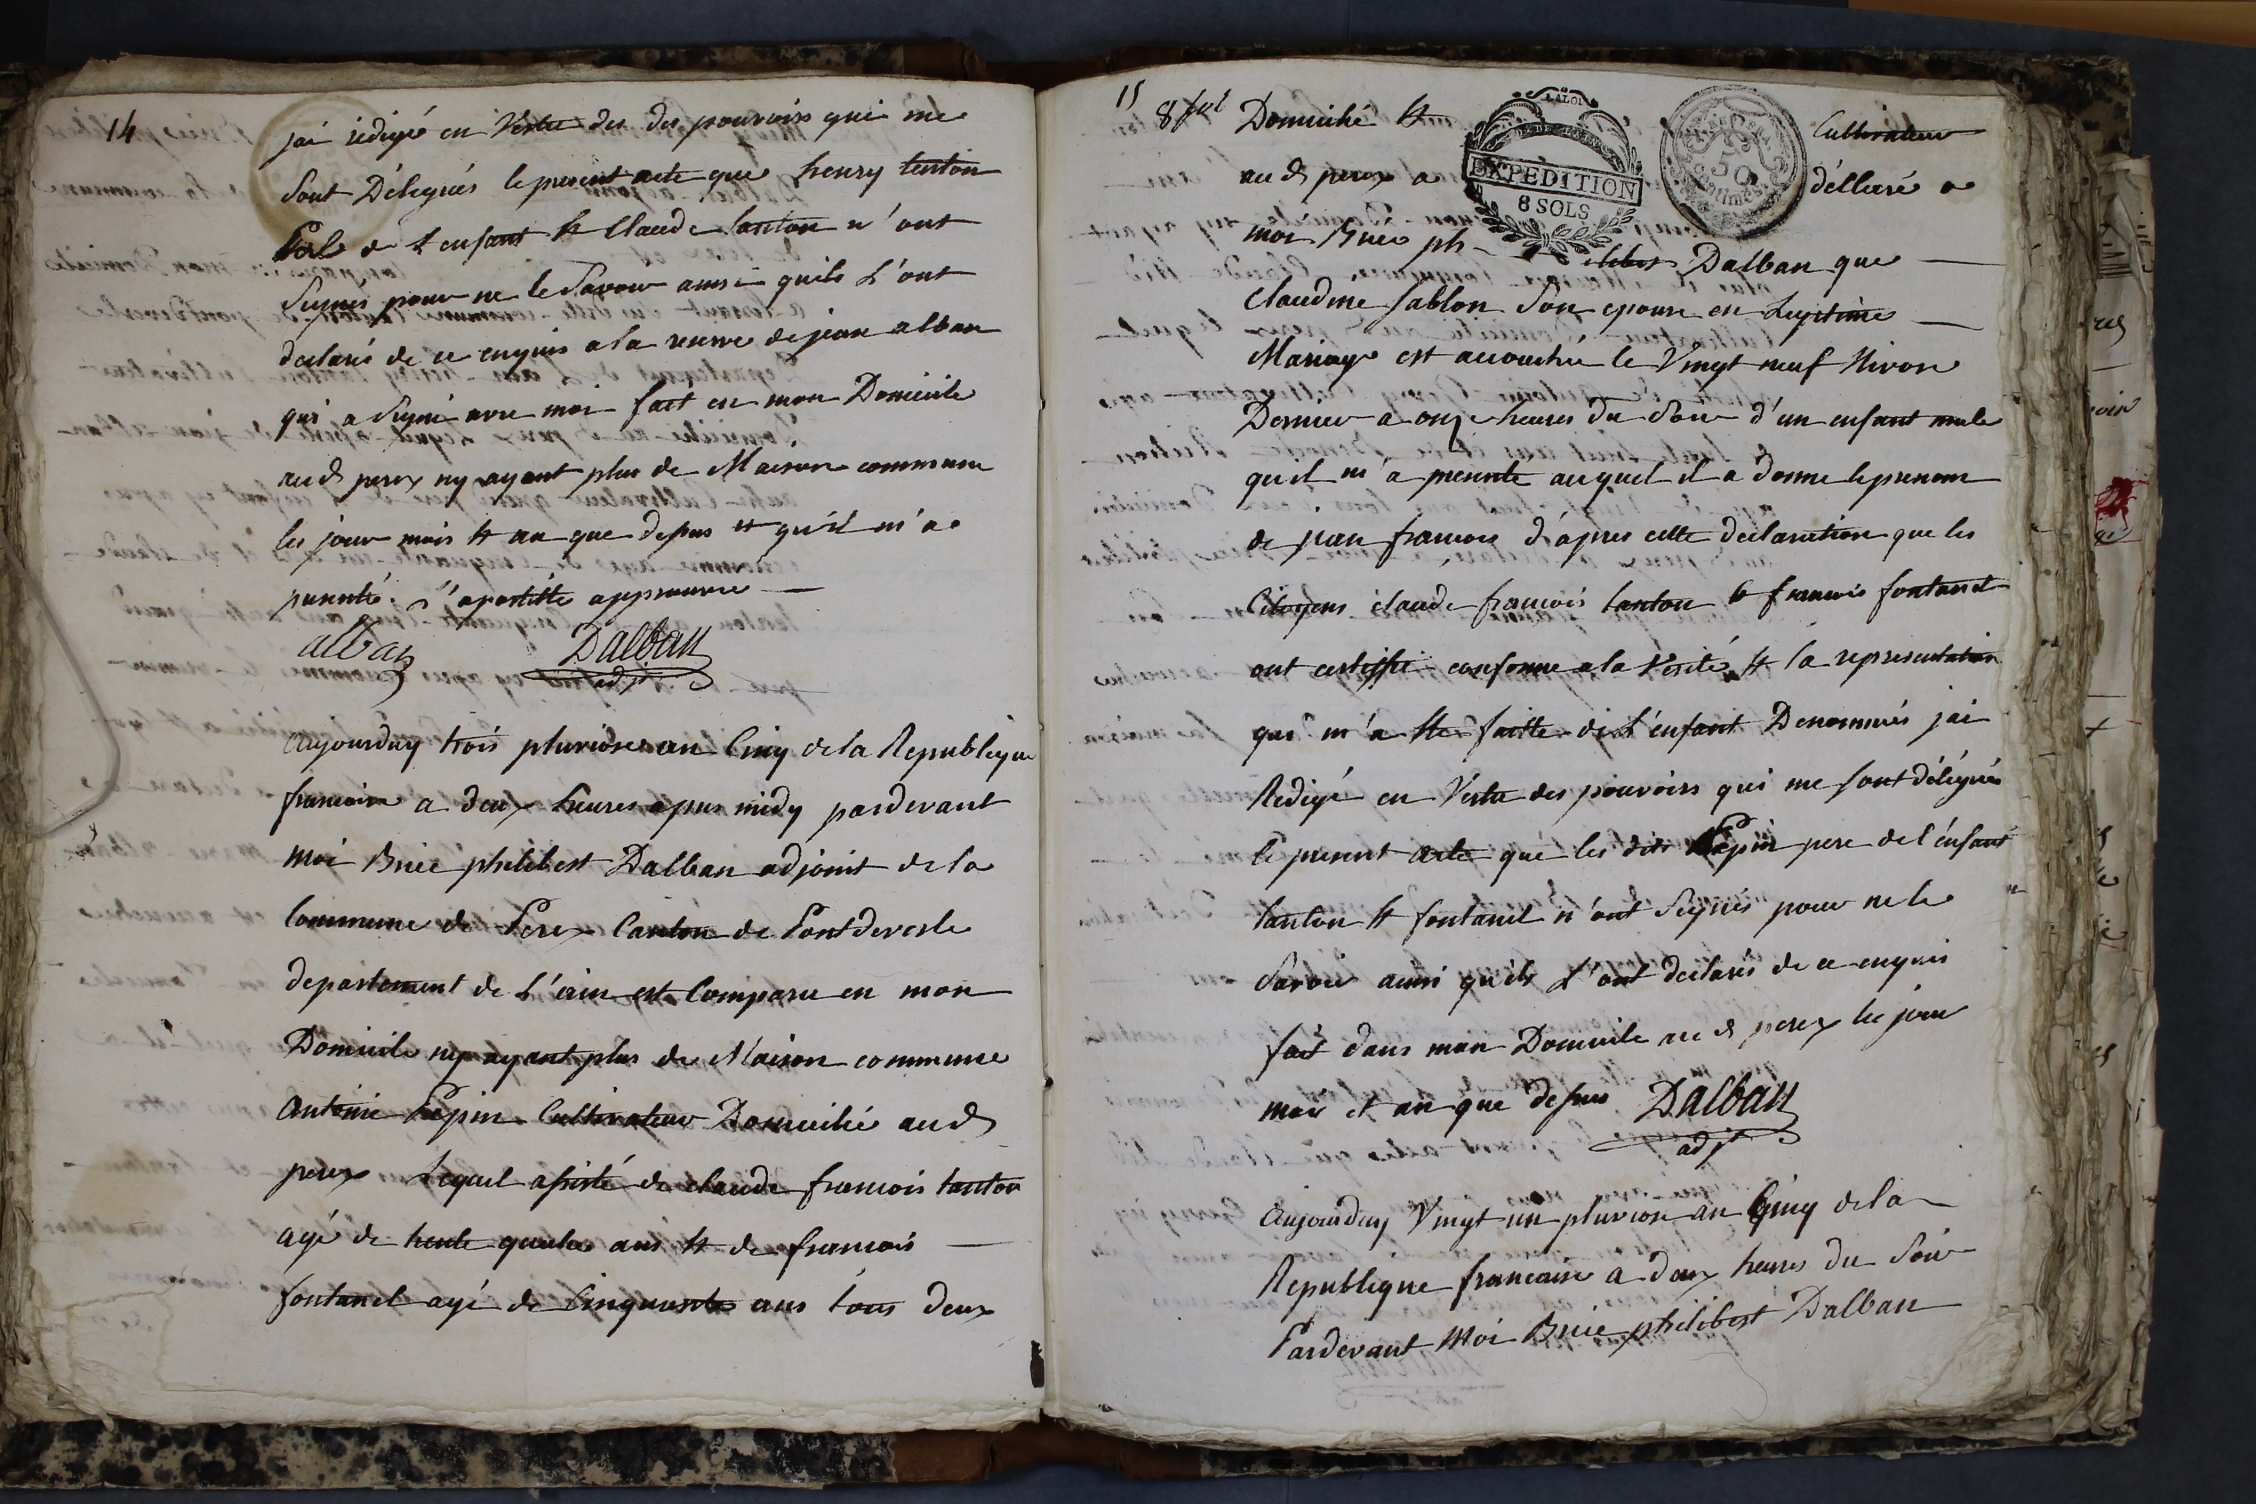 14
jai redigé en Vertu des des pouvoirs qui me
sont Délegués le present acte que henry tenton
Pere de L'enfant et Claude tanton n'ont
Signés pour ne le Savoir ainsi quils L'ont
declarés de ce enquis a la reserve de jean alban
qui a Signé avec moi fait en mon Domicile
aud perex ny ayant plus de Maison commune
les jour mois et an que dessus et qu'il m'a
presenté. L'apostille approuvée
alban Dalban
adjt
aujourduy trois pluviose an Cinq de la Republique
francoise a deux heures apres midy pardevant
moi Brice philibert Dalban adjoint de la
Commune de Perex Canton de Pontdevesle
departement de L'ain est Comparu en mon
Domicile ny ayant plus de Maison commune
antoine Pepin Cultivateur Domicilié aud
perex Lequel assisté de claude francois tanton
agé de trente quatre ans et de francois
fontanel agé de Cinquante ans tous deux
15
8 fol
Domicilié et Cultivateur
LA LOI
EXPÉDITION
8 SOLS
50
Centimes
aud perex a déclaré a
moi Brice ph ilibert Dalban que
Claudine sablon Son epouse en Legitime
Mariage est accouchée le Vingt neuf Nivose
Dernier a onze heures du Soir d'un enfant male
qu'il m'a presenté auquel il a donné le prenom
de jean francois d'apres cette declaration que les
Citoyens claude francois tanton et francois fontanel
ont certiffié conforme a la Verité et la representation
qui m'a été faitte de L'enfant Denommés jai
Redigé en Vertu des pouvoirs qui me sont délégués
le present acte que les dits Pepin pere de l'énfant
tanton et fontanel n'ont Signés pour ne le
Savoir ainsi quils L'ont declarés de ce enquis
fait dans mon Domicile aud perex les jour
mois et an que dessus Dalban
adjt
aujourduy Vingt un pluviose an Cinq de la
Republique francaise a deux heures du Soir
Pardevant Moi Brice philibert Dalban